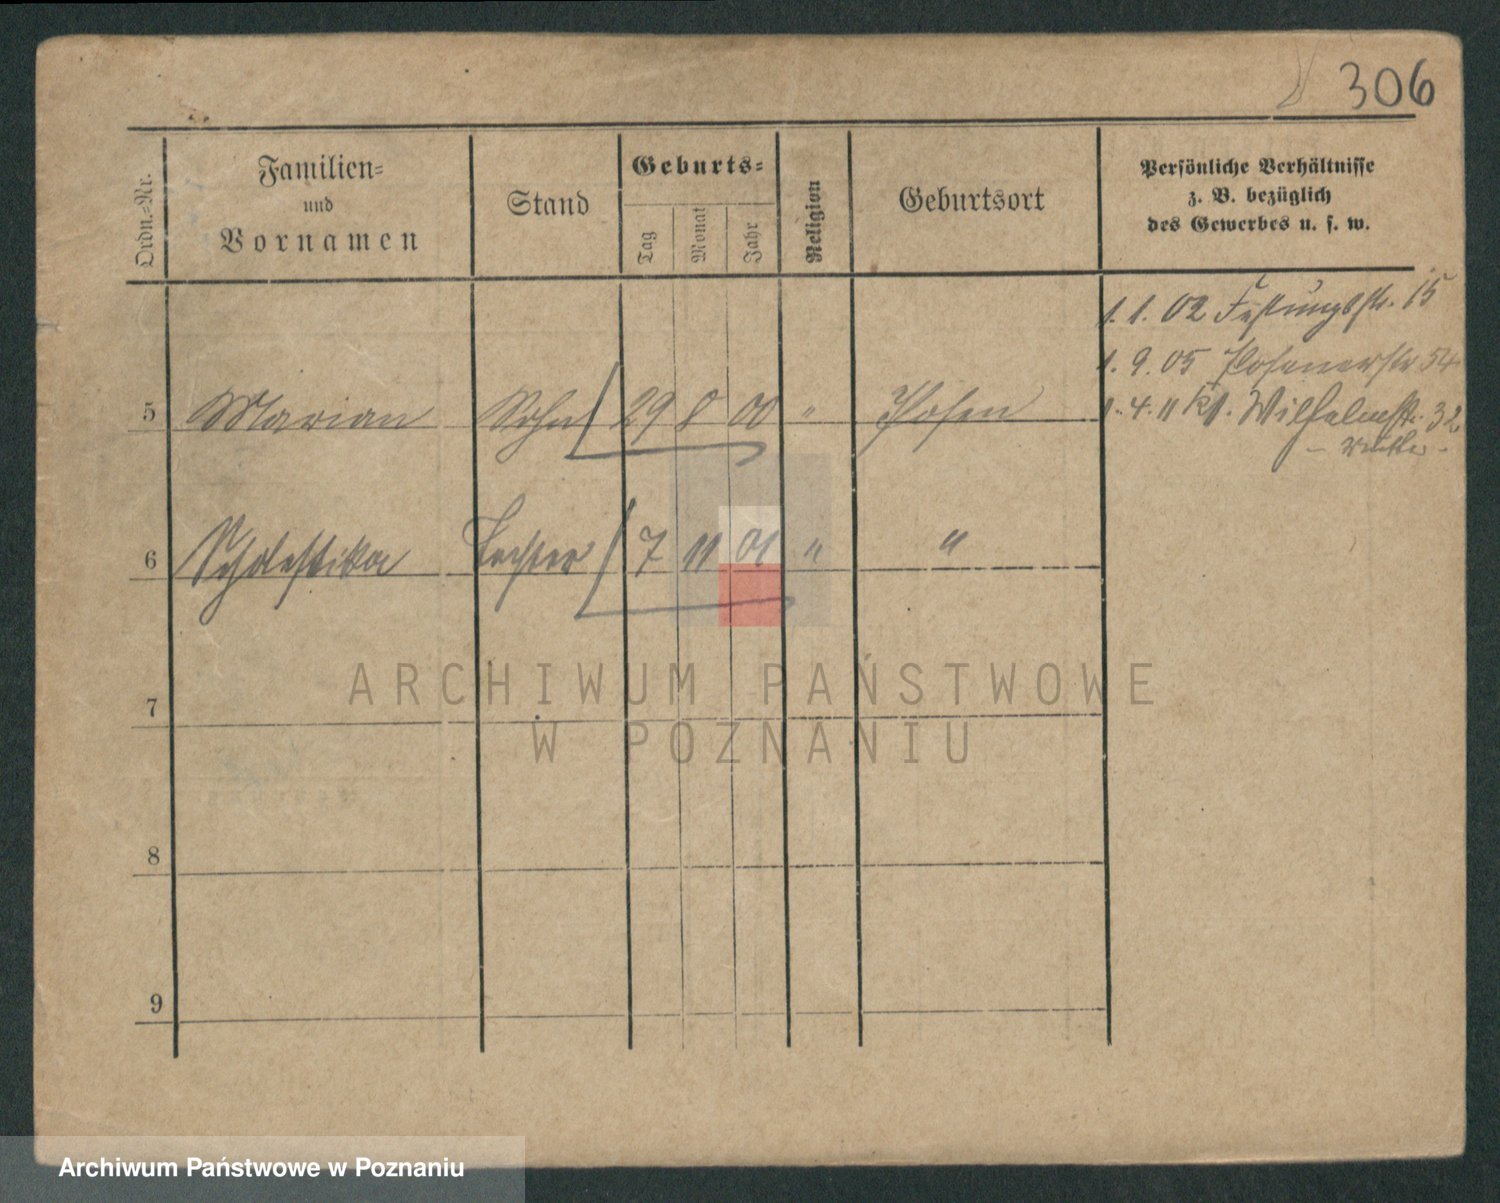 306
Ordn.-Nr.
Familien-
und
Vornamen
Stand
Geburts-
Tag
Monat
Jahr
Religion
Geburtsort
Persönliche Verhältnisse
z. B. bezüglich
des Gewerbes u. s. w.
1. 1. 02 Festungsstr. 15
1. 9. 05 Posenerstr 54
5 Marian Sohn 29 8 00 " Posen
1. 4. 11 Kl. Wilhelmstr. 32
6 Scholastika Tochter 7 11 01 " "
7
8
9
ARCHIWUM PAŃSTWOWE
W POZNANIU
Archiwum Państwowe w Poznaniu